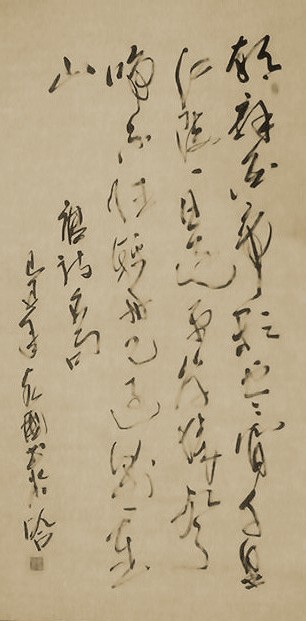 朝辭白帝彩雲間千里
江陵一日還兩岸猿聲
啼不住輕舟已過萬重
山
唐詩
己丑 國